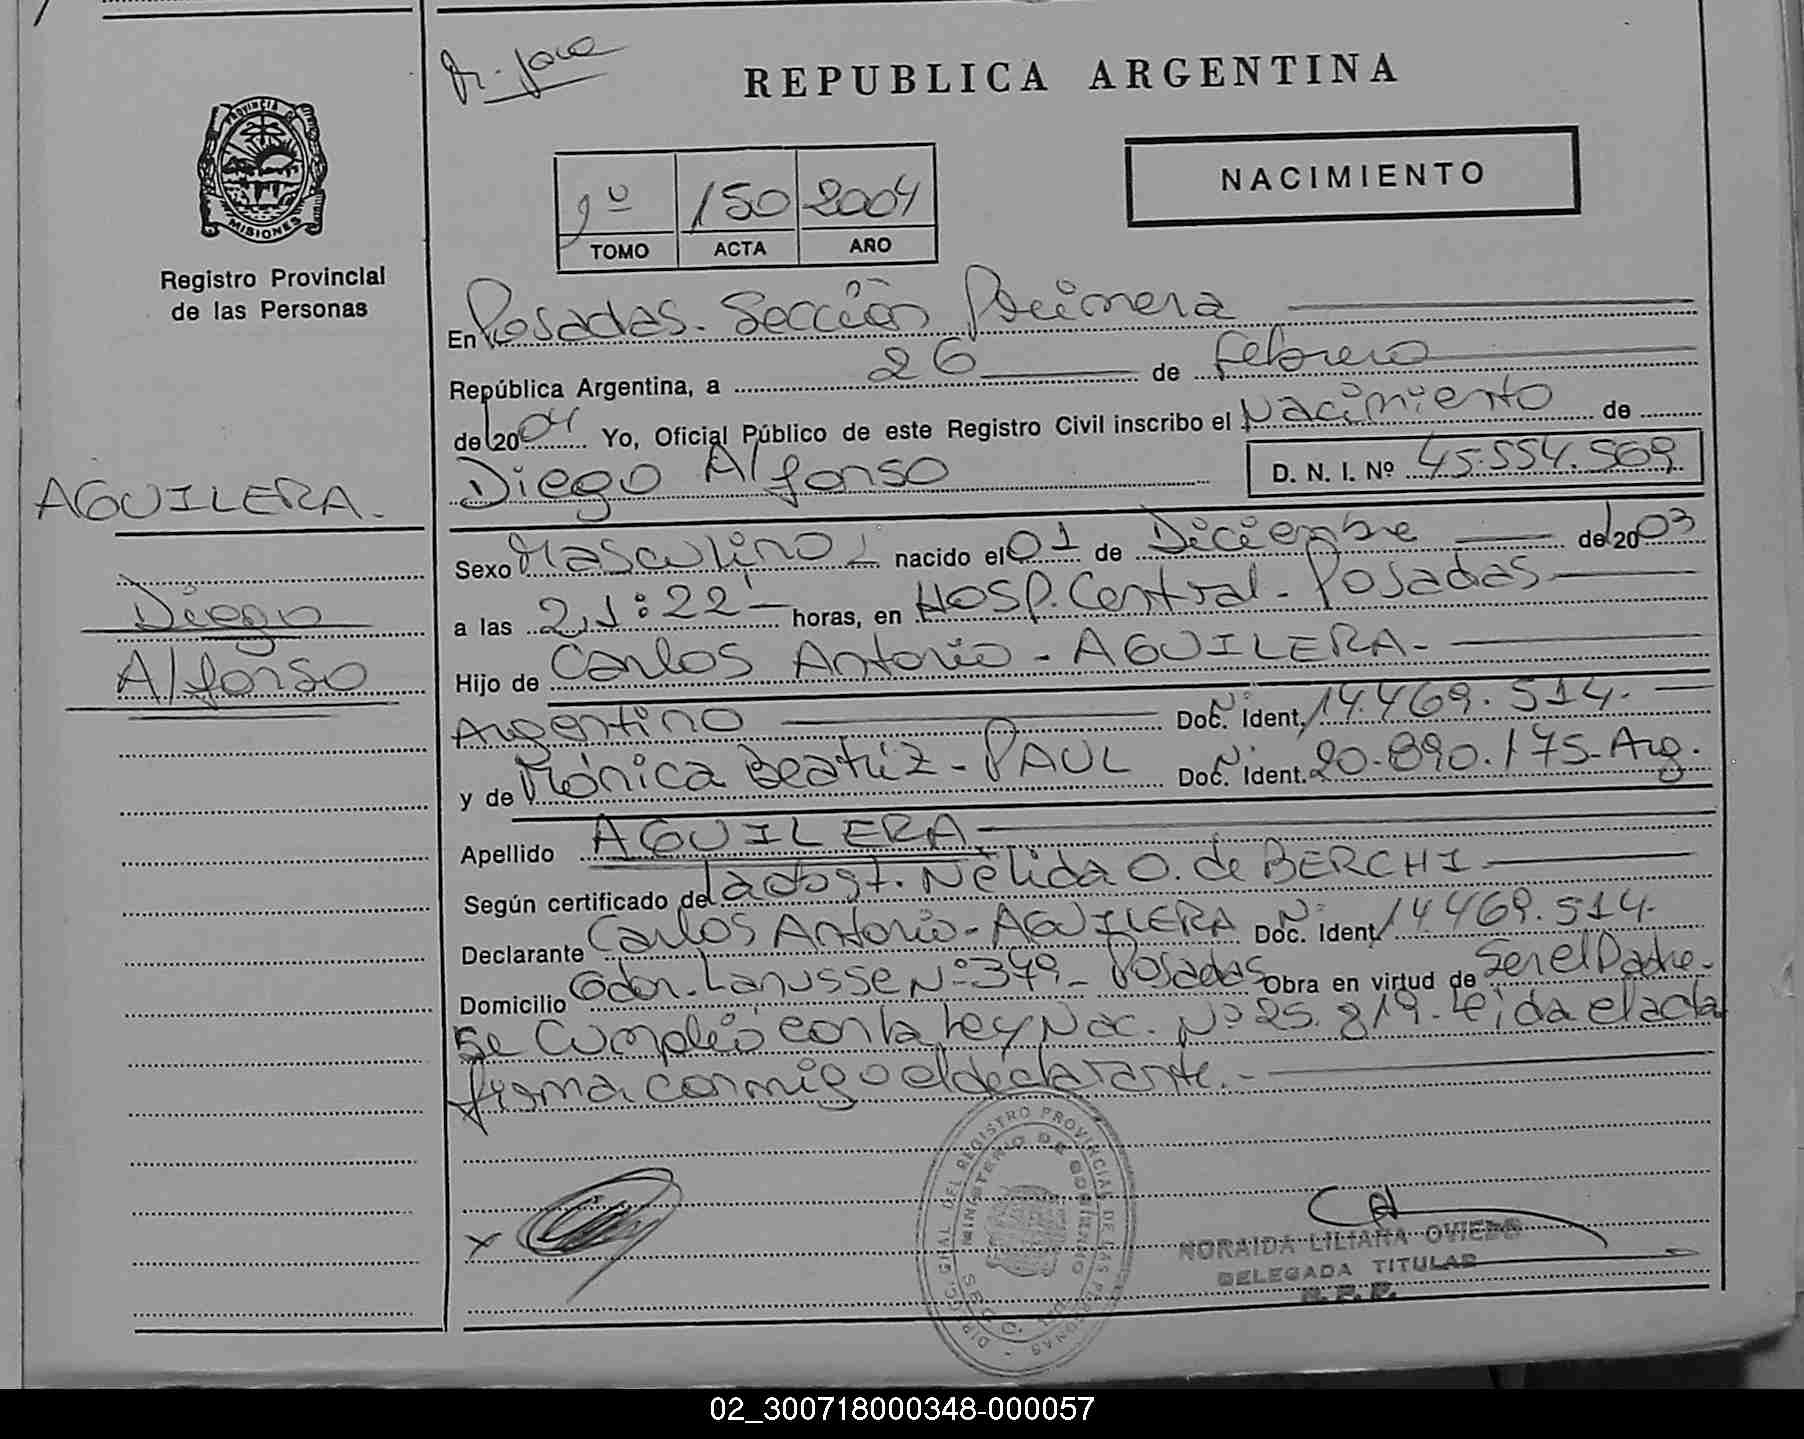 REPUBLICA ARGENTINA
NACIMIENTO
1º 150 2004
TOMO ACTA AÑO
PROVINCIA DE MISIONES
Registro Provincial
de las Personas
En Posadas. Sección Primera
República Argentina, a 26 de Febrero
del 2004 Yo, Oficial Público de este Registro Civil inscribo el Nacimiento de
Diego Alfonso D. N. I. Nº 45.554.569
AGUILERA.
Diego
Alfonso
Sexo Masculino nacido el 01 de Diciembre del 2003
a las 21:22 horas, en Hosp. Central. Posadas
Hijo de Carlos Antonio - AGUILERA.
Argentino Doc. Ident. 14.469.514.
y de Mónica Beatriz - PAUL Doc. Ident. 20.890.175-Arg.
Apellido AGUILERA
Según certificado de la obst. Nélida O. de BERCHI
Declarante Carlos Antonio - AGUILERA Doc. Ident. 14.469.514.
Domicilio Gdor. Lanusse Nº 349 - Posadas Obra en virtud de Ser el Padre.
Se Cumplió con la Ley Nac. Nº 25.819. Leída el acta
firma conmigo el declarante.-
DIRECC. GRAL. DEL REGISTRO PROVINCIAL DE LAS PERSONAS
MINISTERIO DE GOBIERNO
x
NORAIDA LILIANA OVIEDO
DELEGADA TITULAR
R. P. P.
02_300718000348-000057